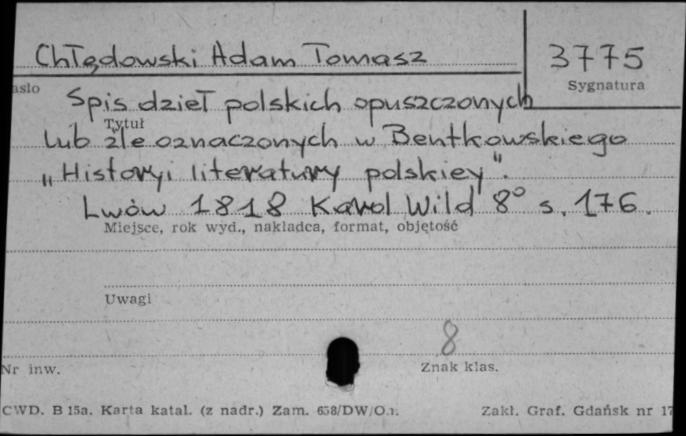 Chłędowski Adam Tomasz 3775
asło Sygnatura
Spis dzieł polskich opuszczonych
Tytuł
lub źle oznaczonych w Bentkowskiego
„Historyi literatury polskiey".
Lwów 1818 Karol Wild 8° s. 176.
Miejsce, rok wyd., nakładca, format, objętość
Uwagi
8
Nr inw. Znak klas.
CWD. B 15a. Karta katal. (z nadr.) Zam. 658/DW/O.1. Zakł. Graf. Gdańsk nr 17